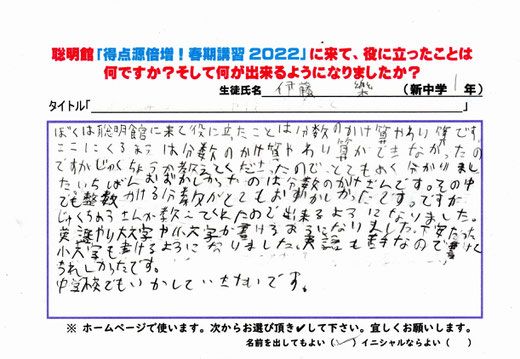 聡明館「得点源倍増!春期講習2022」に来て、役に立ったことは
何ですか?そして何が出来るようになりましたか?
生徒氏名 伊藤 楽 (新中学 1 年)
タイトル「 」
ぼくは聡明館に来て役に立たことは分数のかけ算やわり算です。
ここにくるまでは分数のかけ算やわり算ができなかったの
ですがじゅくちょうが教えてくださったのでとてもよく分かりまし
たいちばんむずかしかったのは分数のかけざんです。その中
でも整数かける分数がとてもむずかしかったです。ですが
じゅくちょうさんが教えてくれたので出来るようになりました。
英語やり大文字や小文字が書けるようになりました。下手だった
小文字も書けるようになりました。英語も苦手なので書けて
うれしかったです。
中学校でもいかしていきたいです。
※ ホームページで使います。次からお選び頂き✔して下さい。宜しくお願いします。
名前を出してもよい(✓) イニシャルならよい( )